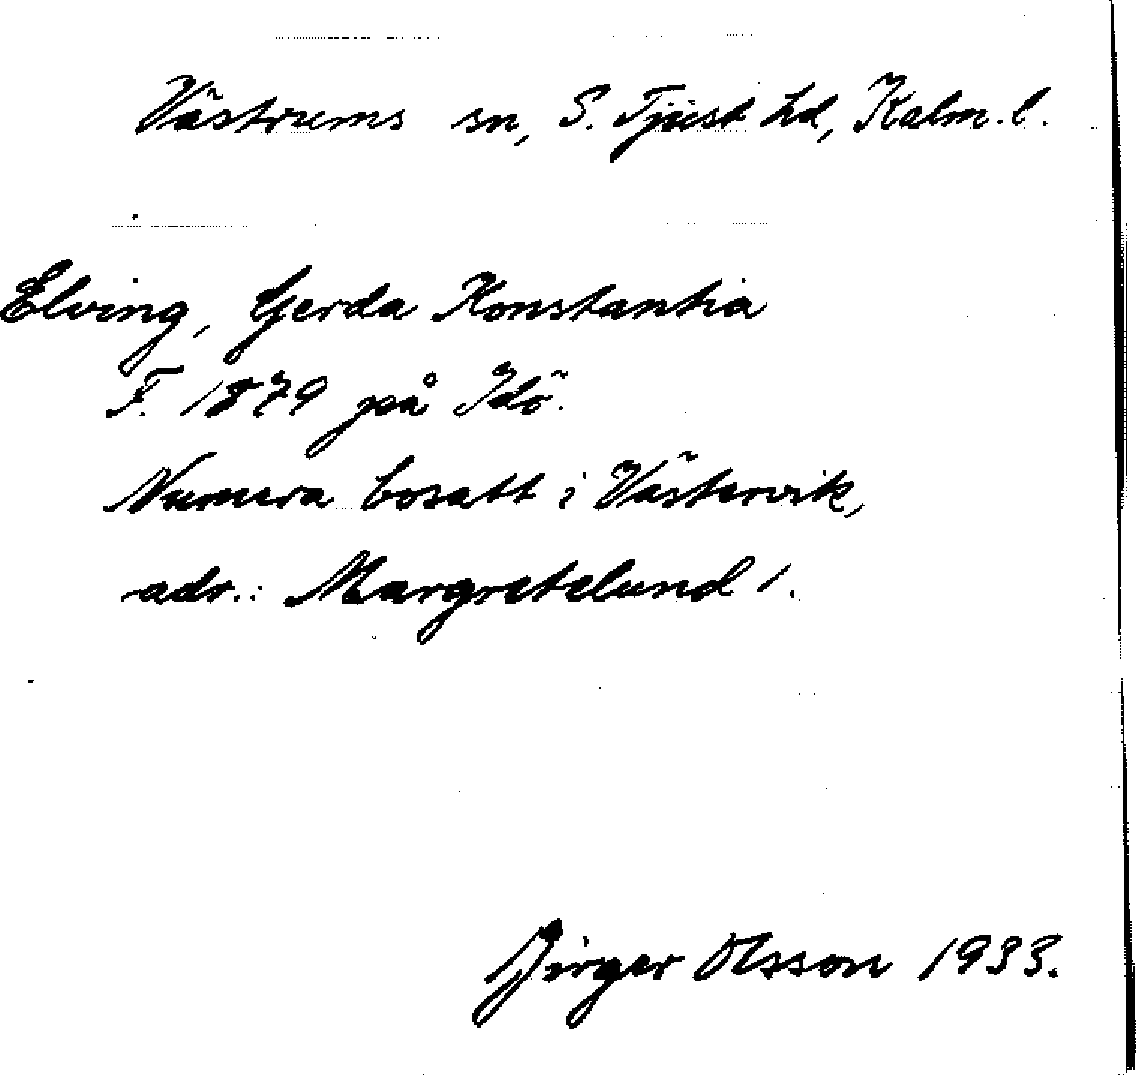 Västrums sn, S. Tjust hd, Kalm. l.
Elving, Gerda Konstantia
F. 1879 på Idö.
Numera bosatt i Västervik,
adr.: Margretelund 1.
Birger Olsson 1933.